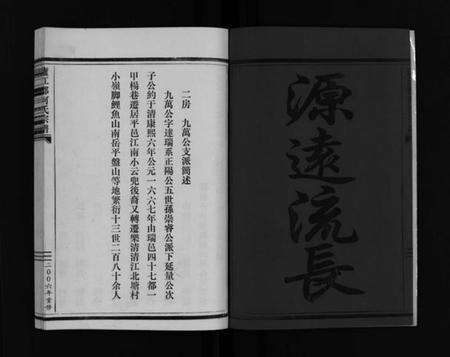 源遠流長
二房 九萬公支派簡述
九萬公字達瑞系正陽公五世孫崇睿公派下延量公次
子公約于清康熙六年公元一六六七年由瑞邑四十七都一
甲楊巷遷居平邑江南小云兜後裔又轉遷樂清清江北塘村
小嶺脚鯉魚山南岳平盤山等地繁衍十三世二百八十余人
廬江郡何氏宗譜
二00六年重修